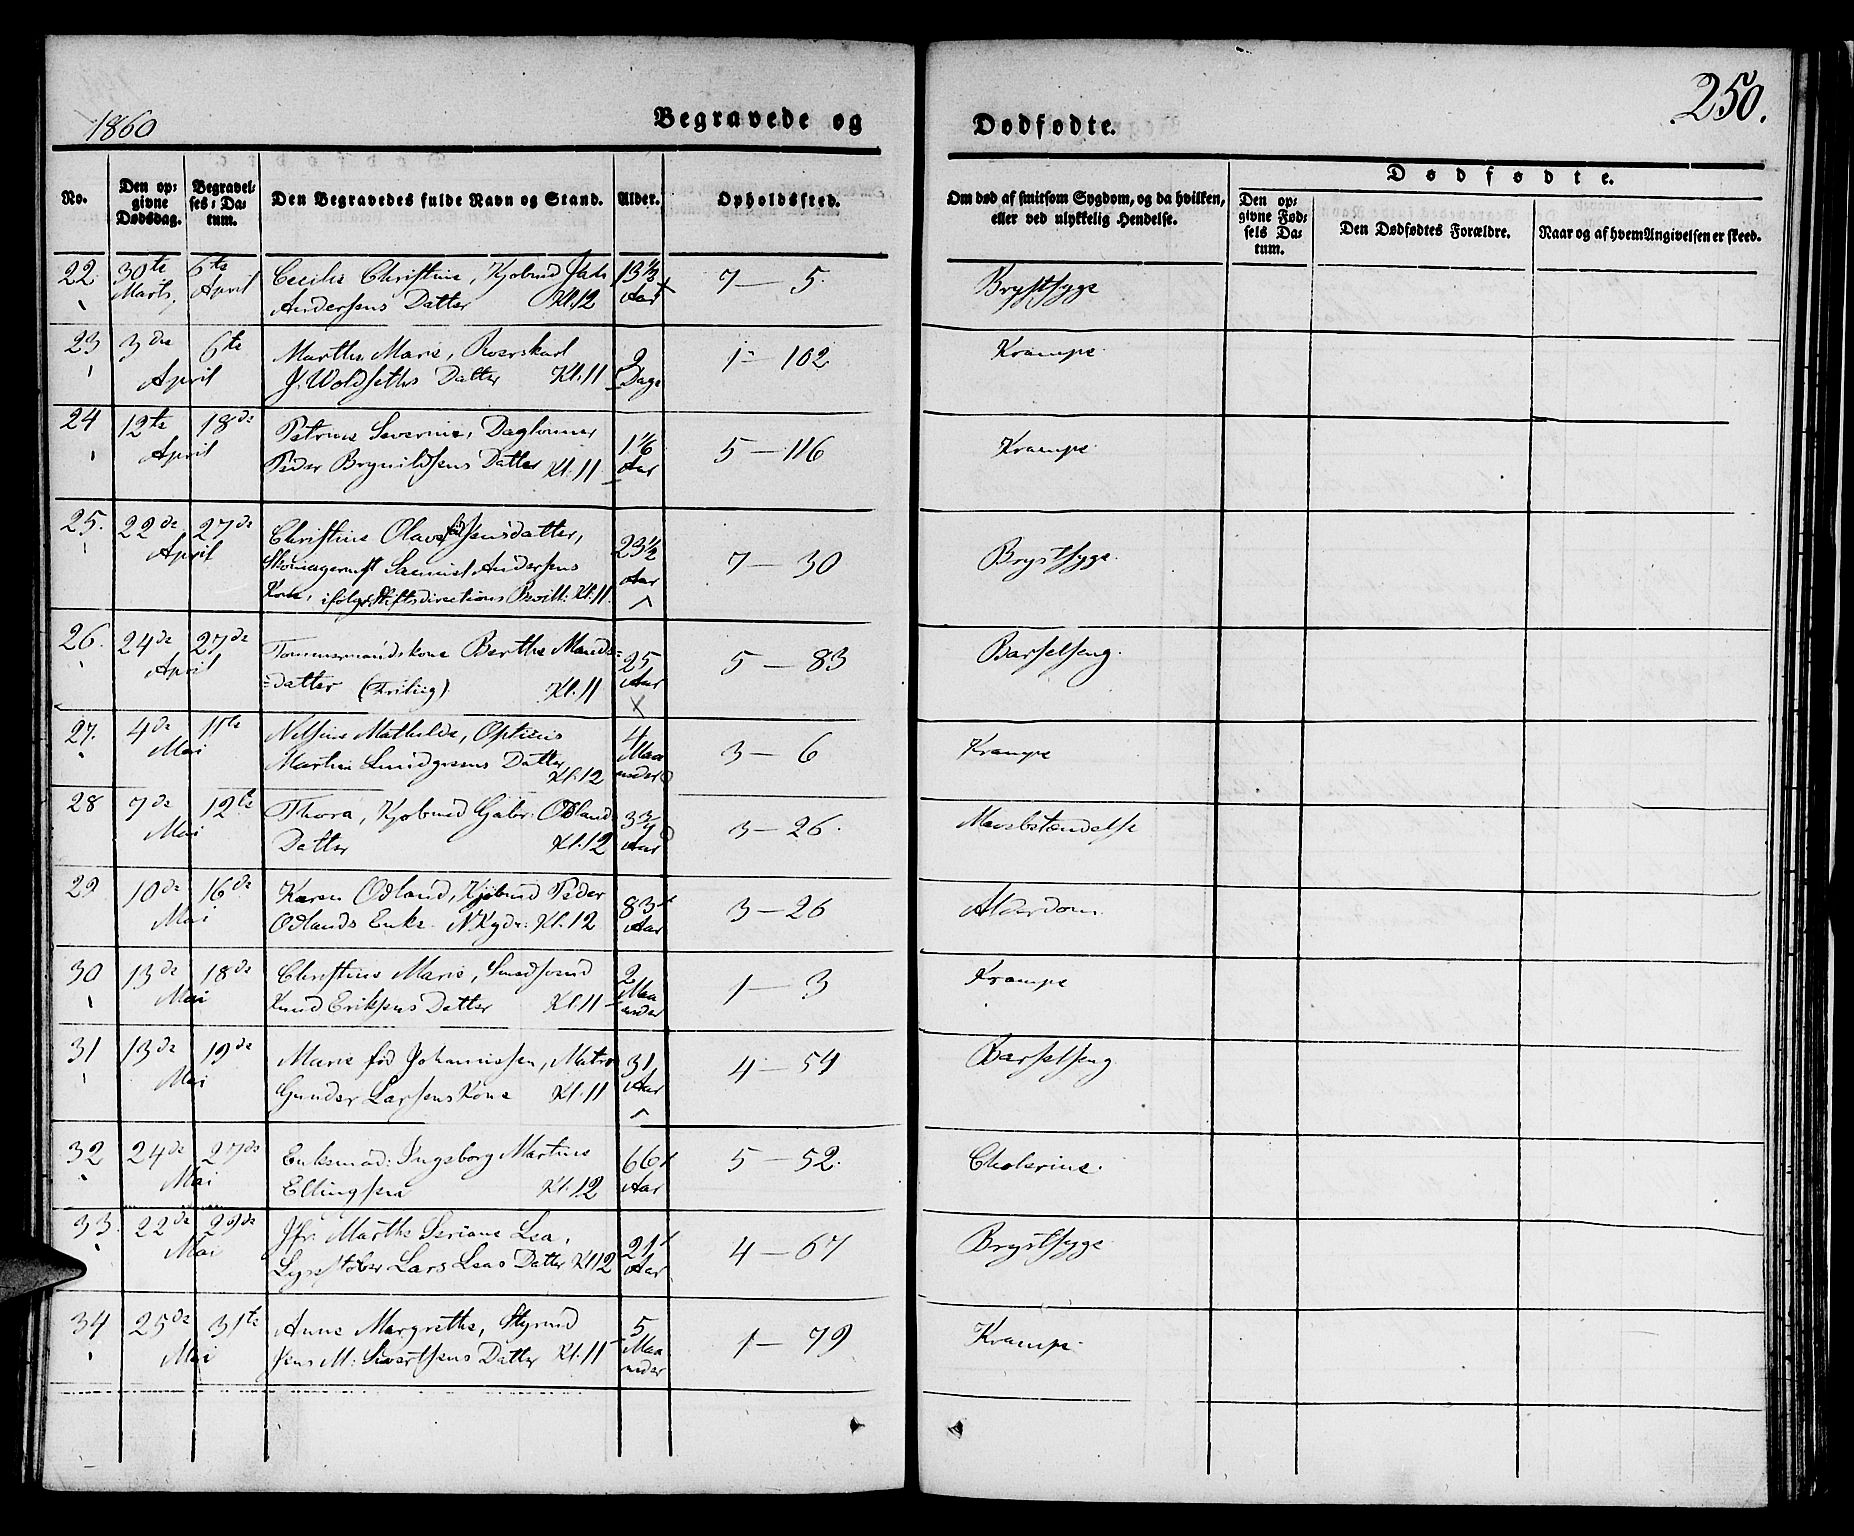 1860
Begravede og
Dødfødte.
250.
No.
Den op=
givne
Dødsdag.
Begravel=
ses= Da=
tum.
Den Begravedes fulde Navn og Stand.
Alder.
Opholdssted.
Om død af smitsom Sygdom, og da hvilken,
eller ved ulykkelig Hendelse.
Dødfødte.
Den op=
givne Fød=
sels Da=
tum.
Den Dødfødtes Forældre.
Naar og af hvem Angivelsen er skeed.
22. 30te 6te Cecilie Christine, Kjøbmd 13½ 7 — 5. Brystsyge
Marts, April Andersens Datter Kl. 12 Aar
23 3die 6te Marthe Marie, Roerskarl 2 1 — 102 Krampe
April J. Woldseths Datter Kl. 11 Dage
24 12te 18de Petrine Severine, Daglønner 1 1/6 5 — 116 Krampe
April Peder Brynildsens Datter Kl. 11 Aar
25. 22de 27de Christine Olava Jensdatter, 23½ 7 — 30 Brystsyge
April Skomagermst Samuel Andersens Aar
Kone, ifølge Stiftsdirections Kl. 11.
26. 24de 27de Tømmermandskone Berthe Mands= 25 5 — 83 Barselseng.
April =datter Kl. 11 Aar
27. 4de 11te Nilsine Mathilde, Opticus 4 3 — 6 Krampe
Mai Martin Lundgreens Datter Maa
Kl. 12 neder
28 7de 12te Thora, Kjøbmd Gabr. Odland 3¾ 3 — 26. Mavebetændelse
Mai Datter Kl. 12 Aar
29 10de 16de Karen Odland, Kjøbmd Peder 83 3 — 26 Alderdom.
Mai Odlands Enke. Kl. 12 Aar
30 13de 18de Christine Marie, Smedsvend 2 1 — 3 Krampe
Mai Knud Eriksens Datter Kl. 11 Maa
neder
31 13de 19de Marie fød Johannissen, Matros 31 4 — 54 Barselseng
Mai Gunder Larsens Kone Kl. 11 Aar
32 24de 27de Enkemad: Ingeborg Martine 66 5 — 52. Cholerine.
Mai Ellingsen Kl. 12 Aar
33. 22de 29de Jfr. Marthe Seriane Lea, 21 4 — 67 Brystsyge
Mai Lysestøber Lars Leas Datter Kl 12 Aar
34 25de 31te Anne Margrethe, Styrmd 5 1 — 79 Krampe.
Mai Jens M: Sivertsens Datter Kl. 11 Maa
neder